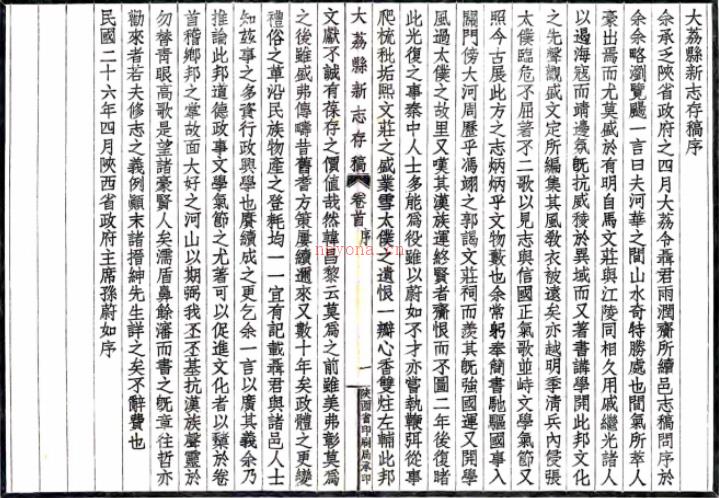 大荔縣新志存稿序
余承乏陝省府政之四月大荔令聶君雨潤齎所續邑志稿問序於
余余略瀏覽颺一言曰夫河華之間山水奇特勝處也間氣所萃人
豪出焉而尤莫盛於有明自馬文莊與江陵同相久用戚繼光諸人
以遏海寇而靖邊氛旣抗威稜於異域而又著書講學開此邦文化
之先聲觀盛文定所編集其風敎衣被遠矣亦越明季清兵內侵張
太僕臨危不屈著不二歌以見志與信國正氣歌並峙文學氣節又
照今古展此方之志炳炳乎文物數也余常躬奉簡書馳驅國事入
關門傍大河周歷乎馮翊之郭謁文莊祠而羨其旣強國運又開學
風過太僕之故里又嘆其漢族運終賢者齎恨而不圖二年後復睹
此光復之事秦中人士多能為役雖以蔚如不才亦嘗執鞭弭從事
爬梳秕垢熙文莊之盛業雪太僕之遺恨一瓣心香雙炷左輔此邦
大荔縣新志存稿 卷首 序 一 陝西省印刷局承印
文獻不誠有葆存之價値哉然韓昌黎云莫為之前雖美弗彰莫為
之後雖盛弗傳疇昔舊耆方策屢續邇來又數十年矣政體之更變
禮俗之革沿民族物產之登耗均一一宜有記載聶君與諸邑人士
知玆事之多資行政興學也賡續成之更乞余一言以廣其義余乃
推論此邦道德政事文學氣節之尤著可以促進文化者以纇於卷
首稽鄉邦之掌故面大好之河山以期弼我丕丕基抗漢族聲靈於
勿替青眼高歌是望諸豪賢人矣濡盾鼻餘瀋而書之旣章往哲亦
勸來者若夫修志之義例顚末諸搢紳先生詳之矣不辭費也
民國二十六年四月陝西省政府主席孫蔚如序
nayona.cn